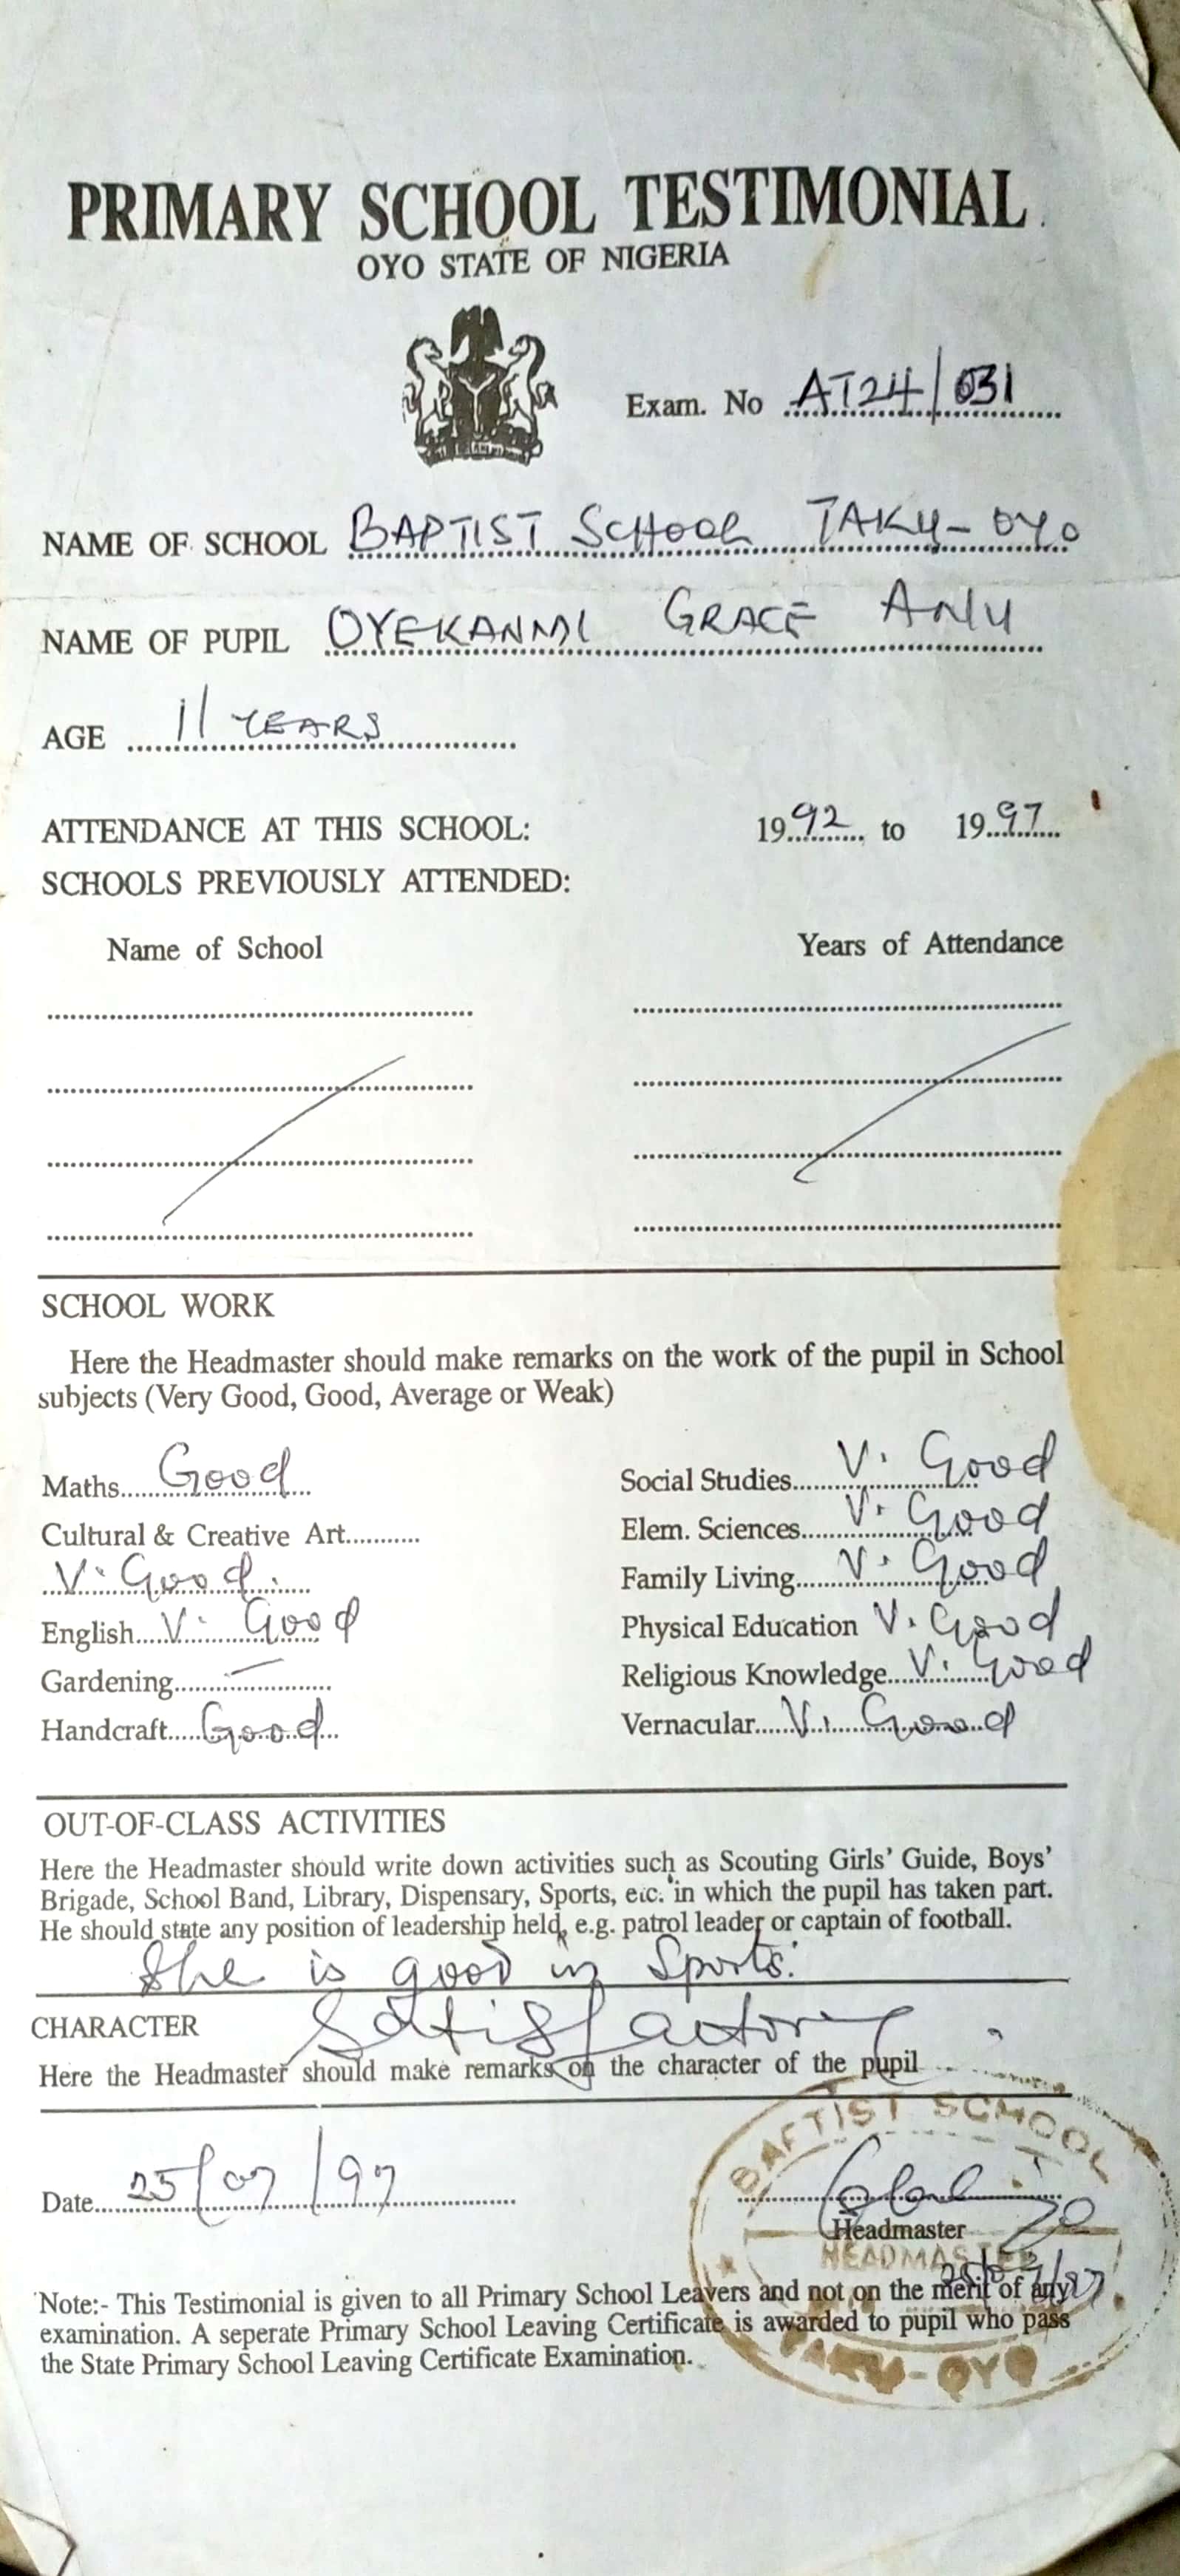 PRIMARY SCHOOL TESTIMONIAL
OYO STATE OF NIGERIA
Exam. No AT24/031
NAME OF SCHOOL BAPTIST SCHOOL TAKU-OYO
NAME OF PUPIL OYEKANMI GRACE ANU
AGE 11 YEARS
ATTENDANCE AT THIS SCHOOL: 1992 to 1997
SCHOOLS PREVIOUSLY ATTENDED:
Name of School Years of Attendance
SCHOOL WORK
Here the Headmaster should make remarks on the work of the pupil in School
subjects (Very Good, Good, Average or Weak)
Maths Good Social Studies V. Good
Cultural & Creative Art Elem. Sciences V. Good
V. Good Family Living V. Good
English V. Good Physical Education V. Good
Gardening — Religious Knowledge V. Good
Handcraft Good Vernacular V. Good
OUT-OF-CLASS ACTIVITIES
Here the Headmaster should write down activities such as Scouting Girls' Guide, Boys'
Brigade, School Band, Library, Dispensary, Sports, etc. in which the pupil has taken part.
He should state any position of leadership held, e.g. patrol leader or captain of football.
She is good in Sports.
CHARACTER Satisfactory
Here the Headmaster should make remarks on the character of the pupil
BAPTIST SCHOOL
Date 25/07/97
Headmaster
HEADMASTER
25/07/97
Note:- This Testimonial is given to all Primary School Leavers and not on the merit of any
examination. A seperate Primary School Leaving Certificate is awarded to pupil who pass
the State Primary School Leaving Certificate Examination.
TAKU-OYO